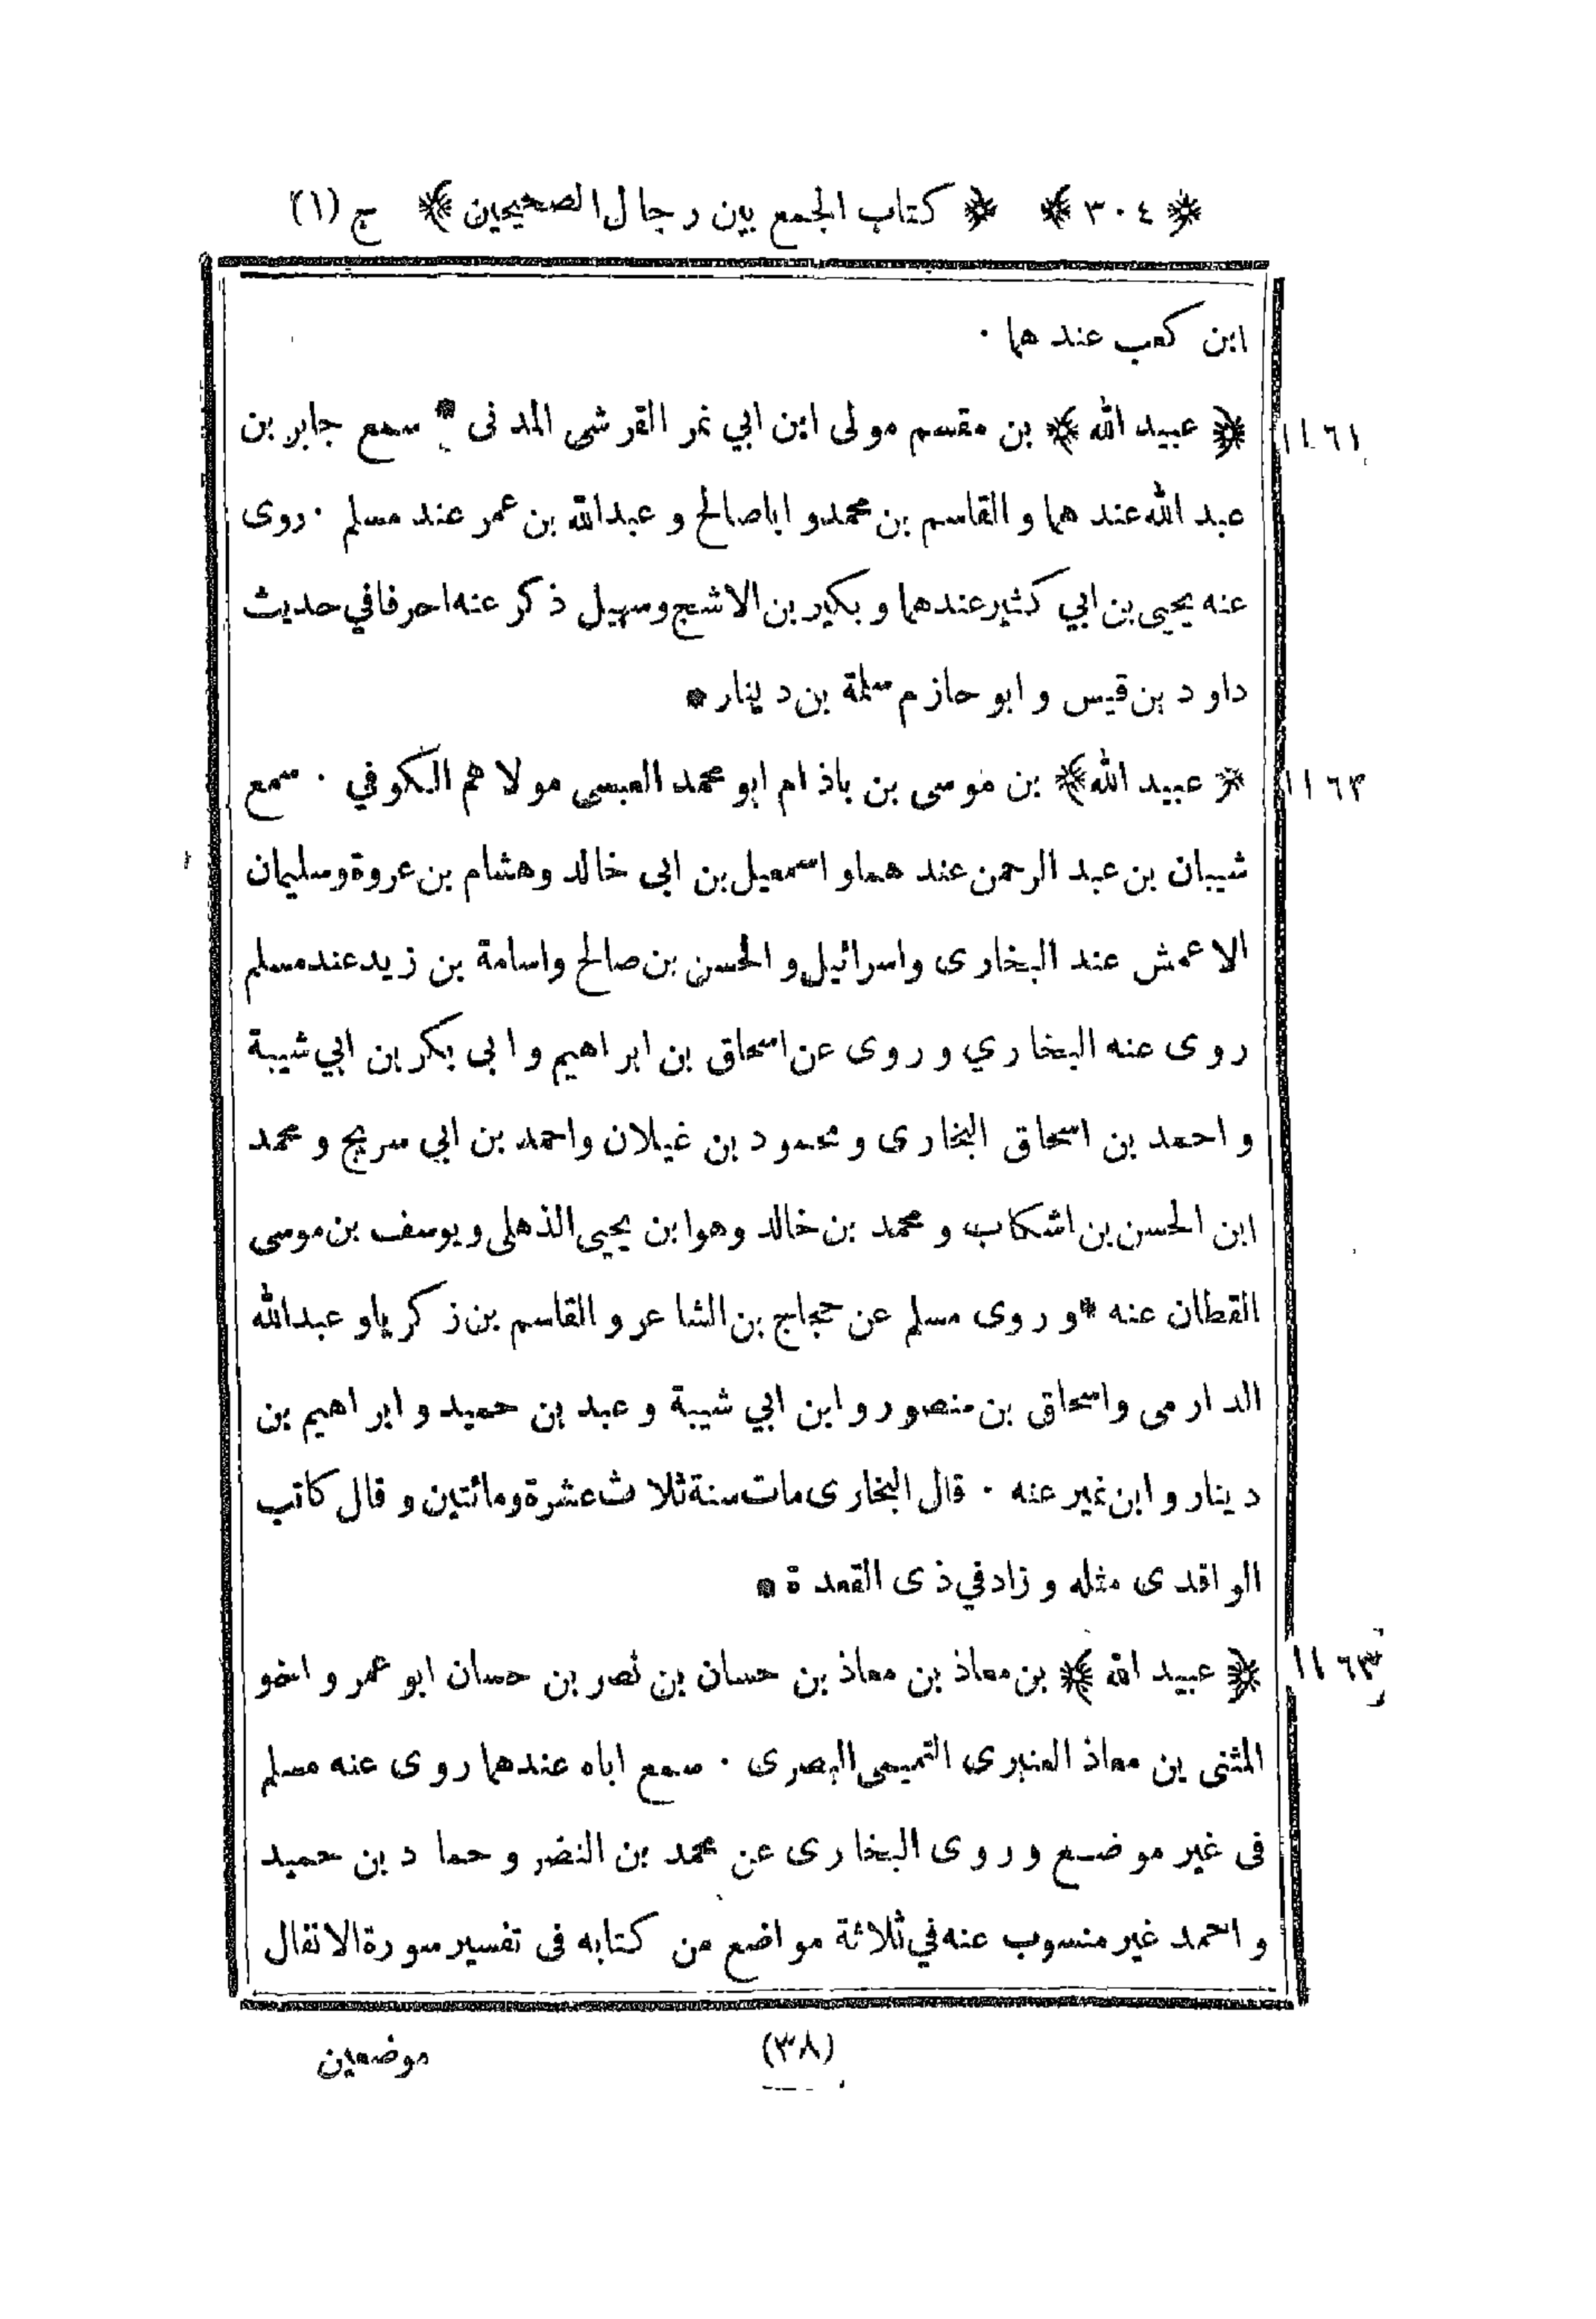 ﴿٣٠٤﴾ ﴿كتاب الجمع بين رجال الصحيحين﴾ ج (١)
ابن كعب عندهما ٠
١١٦١ ﴿عبيد الله﴾ بن مقسم مولى ابن ابي نمر القرشى المدنى * سمع جابر بن
عبد الله عندهما والقاسم بن محمد و اباصالح و عبدالله بن عمر عند مسلم ٠ روى
عنه يحيى بن ابي كثير عندهما و بكير بن الاشج وسهيل ذكر عنه احرفا في حديث
داود بن قيس و ابو حازم سلمة بن دينار *
١١٦٢ ﴿عبيد الله﴾ بن موسى بن باذام ابو محمد العبسى مولاهم الكوفي ٠ سمع
شيبان بن عبد الرحمن عندهما و اسمعيل بن ابى خالد وهشام بن عروة وسليمان
الاعمش عند البخارى واسرائيل و الحسن بن صالح واسامة بن زيد عند مسلم
روى عنه البخاري و روى عن اسحاق بن ابراهيم و ابى بكر بن ابي شيبة
و احمد بن اسحاق البخارى و محمود بن غيلان واحمد بن ابي سريج و محمد
ابن الحسن بن اشكاب و محمد بن خالد وهو ابن يحيى الذهلى و يوسف بن موسى
القطان عنه * و روى مسلم عن حجاج بن الشاعر و القاسم بن زكريا و عبدالله
الدارمى واسحاق بن منصور و ابن ابي شيبة و عبد بن حميد و ابراهيم بن
دينار و ابن نمير عنه ٠ قال البخارى مات سنة ثلاث عشرة ومائتين و قال كاتب
الواقدى مثله و زاد في ذى القعدة *
١١٦٣ ﴿عبيد الله﴾ بن معاذ بن معاذ بن حسان بن نصر بن حسان ابو عمر و اخو
المثنى بن معاذ العنبرى التميمى البصرى ٠ سمع اباه عندهما روى عنه مسلم
فى غير موضع و روى البخارى عن محمد بن النضر و حماد بن حميد
و احمد غير منسوب عنه في ثلاثة مواضع من كتابه فى تفسير سورة الانفال
(٣٨) موضعين